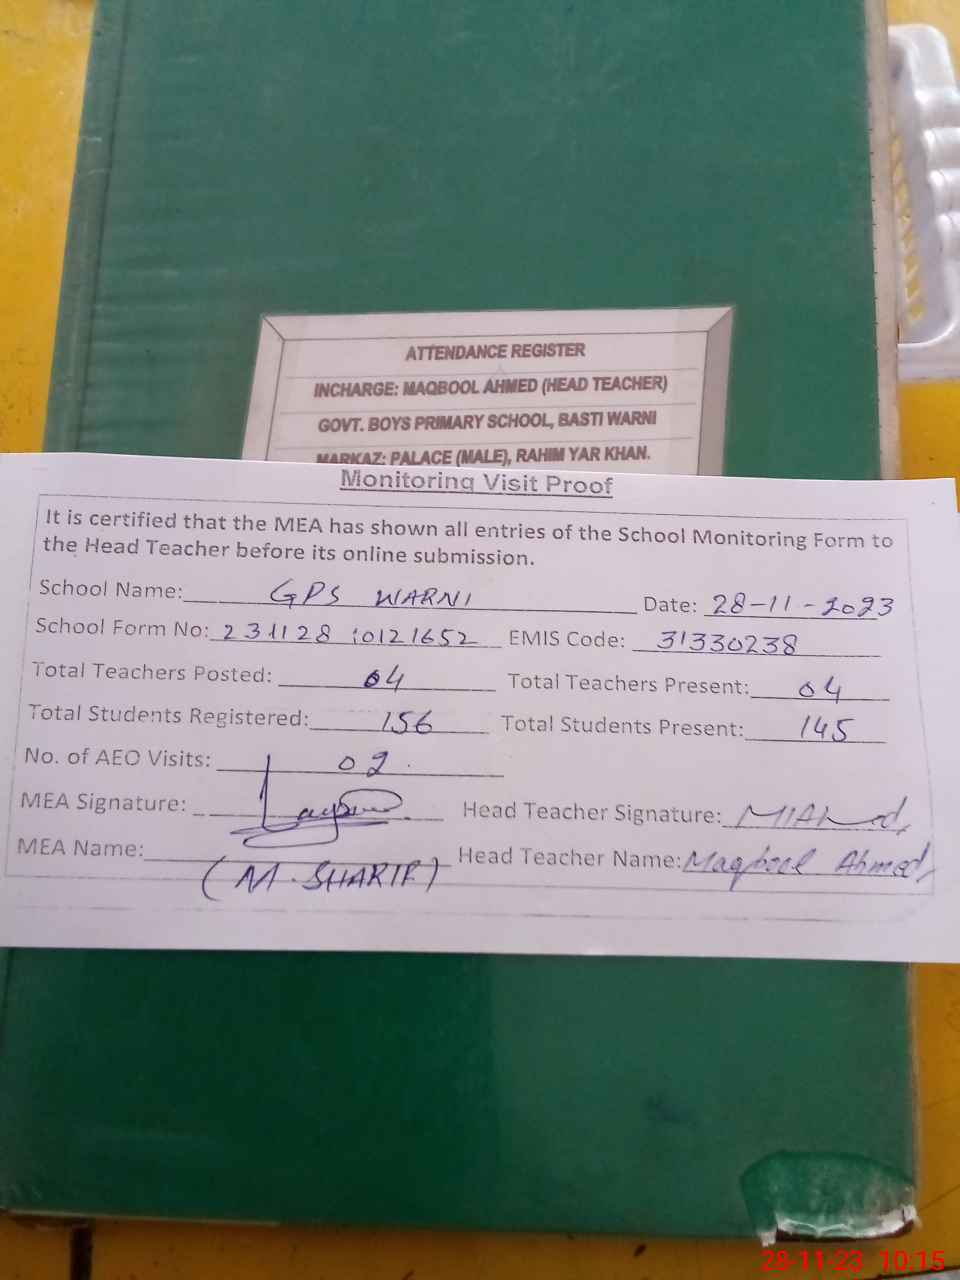 ATTENDANCE REGISTER
INCHARGE: MAQBOOL AHMED (HEAD TEACHER)
GOVT. BOYS PRIMARY SCHOOL, BASTI WARNI
MARKAZ: PALACE (MALE), RAHIM YAR KHAN.
Monitoring Visit Proof
It is certified that the MEA has shown all entries of the School Monitoring Form to
the Head Teacher before its online submission.
School Name: GPS WARNI Date: 28-11-2023
School Form No: 231128 10121652 EMIS Code: 31330238
Total Teachers Posted: 04 Total Teachers Present: 04
Total Students Registered: 156 Total Students Present: 145
No. of AEO Visits: 02
MEA Signature: Head Teacher Signature: MIAhmed
MEA Name: (M. SHARIF) Head Teacher Name: Maqbool Ahmed
28-11-23 10:15